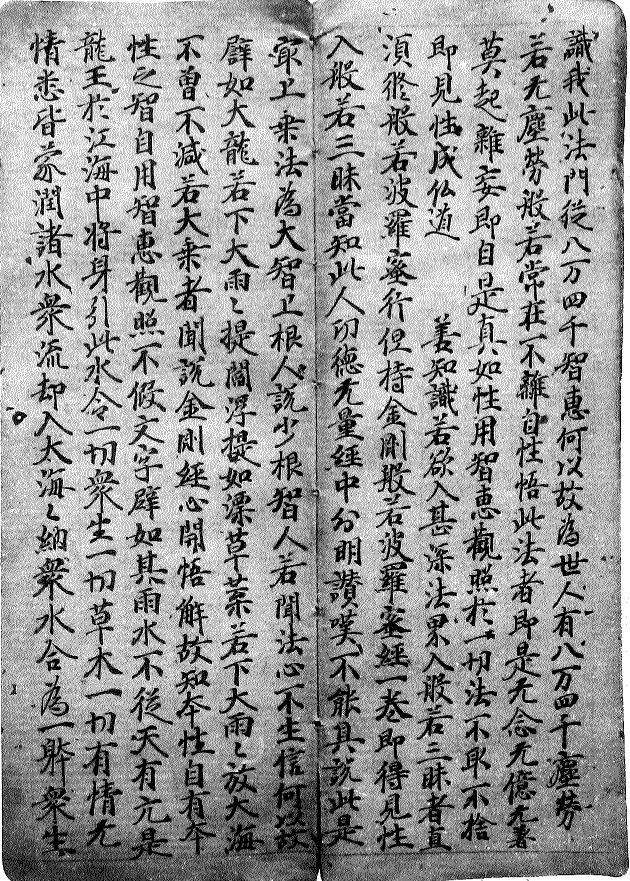 識我此法門從八万四千智惠何以故為世人有八万四千塵勞
若无塵勞般若常在不離自性悟此法者即是无念无億无著
莫起雜妄即自是真如性用智惠觀照於一切法不取不捨
即見性成仏道　善知識若欲入甚深法界入般若三昧者直
須修般若波羅蜜行但持金剛般若波羅蜜經一卷即得見性
入般若三昧當知此人功德无量經中分明讚嘆不能具說此是
最上乘法為大智上根人說少根智人若聞法心不生信何以故
辟如大龍若下大雨〻提閻浮提如漂草葉若下大雨〻放大海
不曾不減若大乘者聞說金剛經心開悟解故知本性自有本
性之智自用智惠觀照不假文字辟如其雨水不從天有亢是
龍王於江海中將身引此水令一切衆生一切草木一切有情无
情悉皆蒙潤諸水衆流却入大海〻納衆水合為一躰衆生